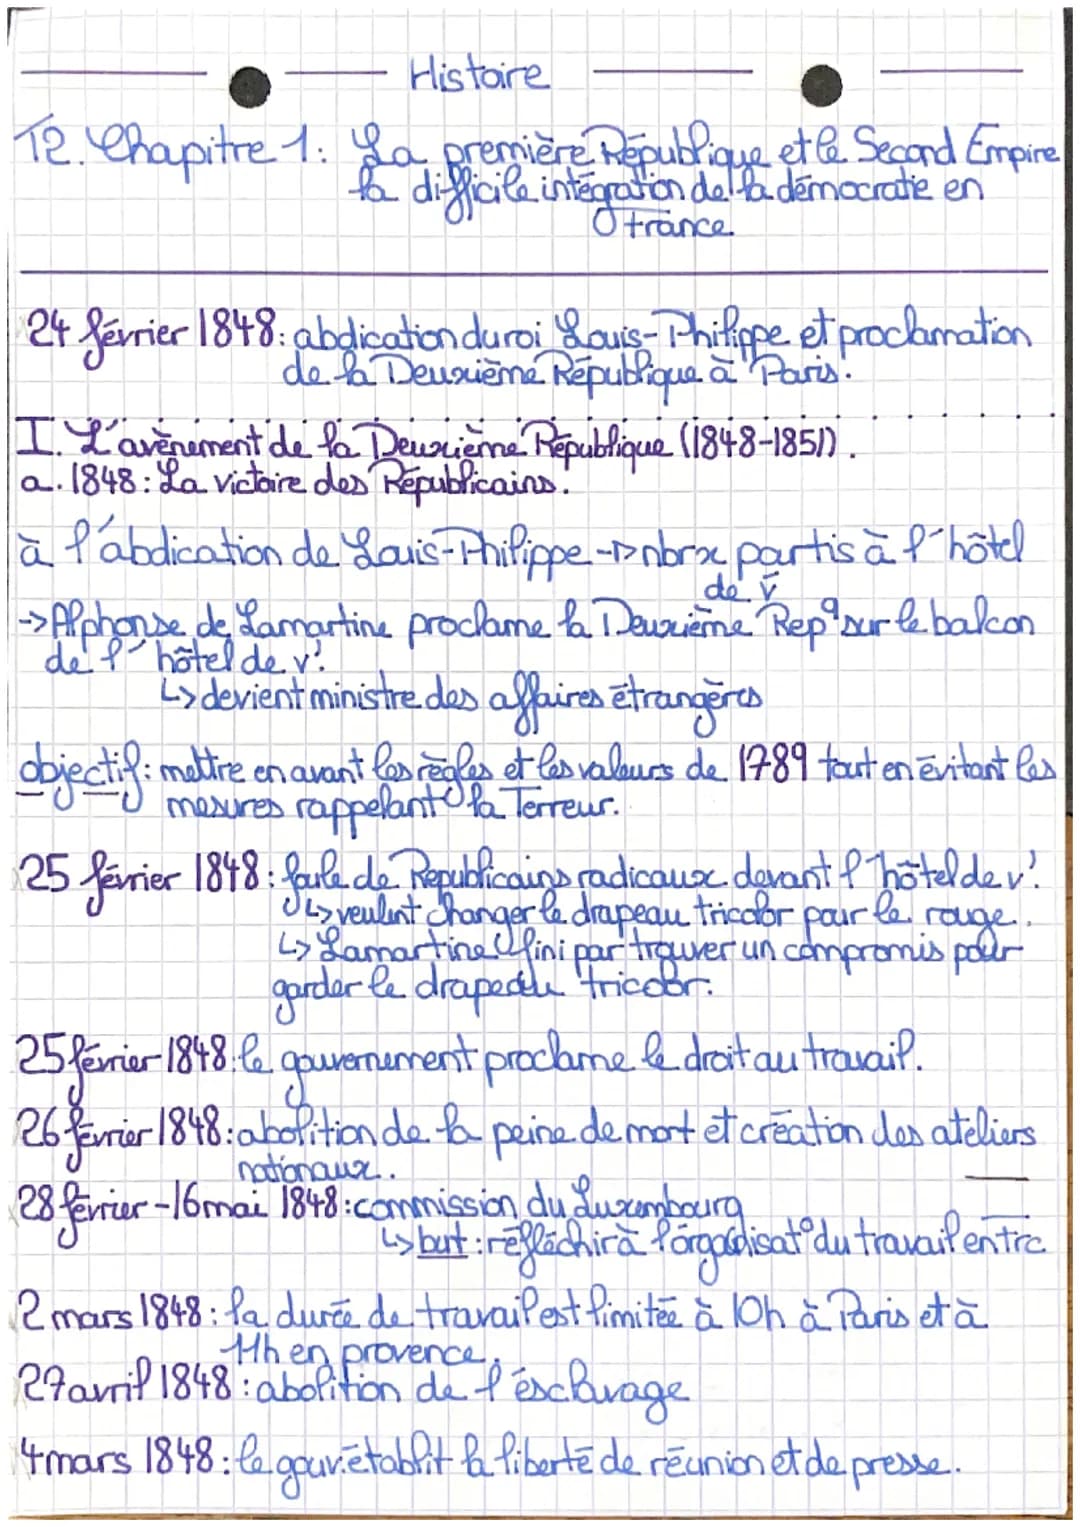 Histoire
T2. Chapitre 1: La première République et le Second Empire
la difficile intégration de la démocratie en
France
24 février 1848: abdication du roi Louis-Philippe et proclamation
de la Deuxième République à Paris.
I. L'avènement de la Deuxième République (1848-1851).
a. 1848: La victoire des Républicains.
à l'abdication de Louis-Philippe -> nbrx partis à l'hôtel
de v
-> Alphonse de Lamartine proclame la Deuxième Rep° sur le balcon
de l'hôtel de v!
↳ devient ministre des affaires étrangères
objectif: mettre en avant les règles et les valeurs de 1789 tout en évitant les
mesures rappelant la Terreur.
25 février 1848: foule de Républicains radicaux devant l'hôtel de v!
↳ veulent changer le drapeau tricolor pour le rouge.
↳ Lamartine fini par trouver un compromis pour
garder le drapeau tricolor.
25 février 1848: le gouvernement proclame le droit au travail.
26 février 1848: abolition de la peine de mort et création des ateliers
nationaux.
28 février - 16 mai 1848: commission du Luxembourg
↳ but: réfléchir à l'organisat° du travail entre
2 mars 1848: la durée de travail est limitée à 10h à Paris et à
11h en provence.
27 avril 1848: abolition de l'esclavage
4 mars 1848: le gouv. établit la liberté de réunion et de presse.